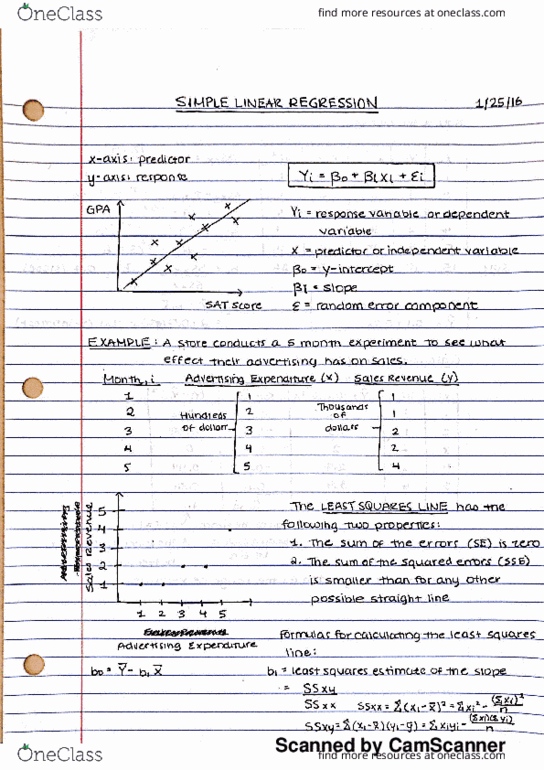 OneClass
find more resources at oneclass.com
SIMPLE LINEAR REGRESSION 1/25/16
x-axis: predictor
y-axis: response
Yi = β0 + β1xi + εi
GPA
SAT Score
Yi = response variable or dependent
variable
X = predictor or independent variable
β0 = y-intercept
β1 = slope
ε = random error component
EXAMPLE: A store conducts a 5 month experiment to see what
effect their advertising has on sales.
Month, i Advertising Expenditure (X) Sales Revenue (Y)
1 1 1
2 Hundreds 2 Thousands 1
of dollars of
3 3 dollars 2
4 4 2
5 5 4
Sales Revenue
5
4
3
2
1
1 2 3 4 5
Advertising Expenditure
The LEAST SQUARES LINE has the
following two properties:
1. The sum of the errors (SE) is zero
2. The sum of the squared errors (SSE)
is smaller than for any other
possible straight line
Formulas for calculating the least squares
line:
b0 = Y̅ - b1 X̅
b1 = least squares estimate of the slope
= SSxy
SSxx SSxx = Σ(xi - x̅)² = Σxi² - (Σxi)²/n
SSxy = Σ(xi - x̅)(yi - y̅) = Σxiyi - (Σxi)(Σyi)/n
Scanned by CamScanner
OneClass
find more resources at oneclass.com